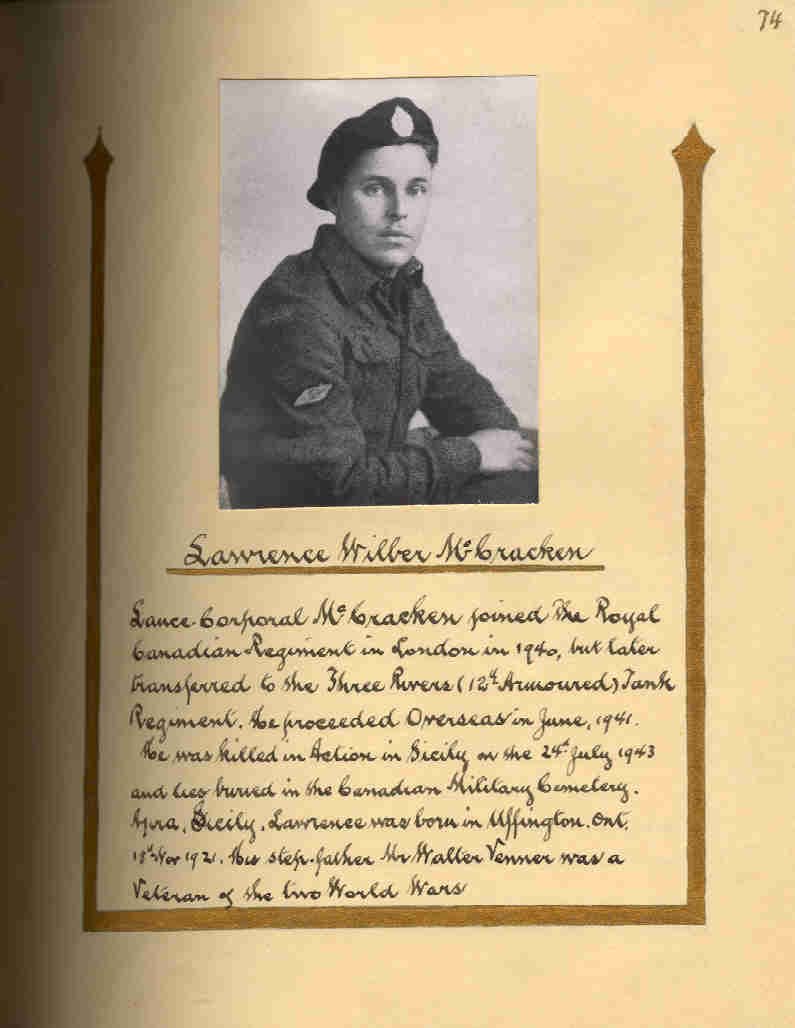 74
Lawrence Wilber McCracken
Lance-Corporal McCracken joined The Royal
Canadian Regiment in London in 1940, but later
transferred to the Three Rivers (12th Armoured) Tank
Regiment. He proceeded Overseas in June, 1941.
He was killed in Action in Sicily on the 24th July 1943
and lies buried in the Canadian Military Cemetery.
Agira, Sicily. Lawrence was born in Uffington. Ont.
18th Nov 1921. His step-father Mr Walter Venner was a
Veteran of the two World Wars